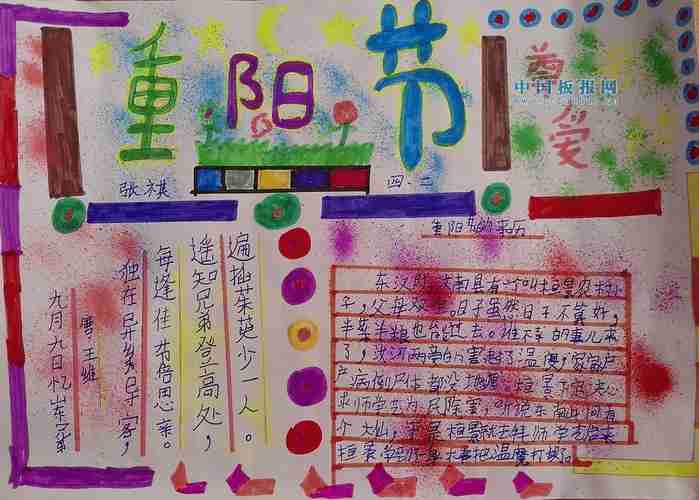 重阳节
尊爱
中国板报网
张祺
四.二
九月九日忆山东兄
唐 王维
独在异乡异客,
每逢佳节倍思亲。
遥知兄弟登高处,
遍插茱萸少一人。
重阳节的来历
东汉时,汝南县有一个叫桓景农村小
子,父母双 日子虽然日子不算好,
半菜半粮也能过去。 不幸的事儿来
了,汝河两岸的害起了温疫,家家户
户病倒尸体都没地埋 桓景下定决心
求师学艺为民除害,听说东南山中有
个大仙, 桓景就去拜师学艺后来
桓景学 大事把温魔打败了。